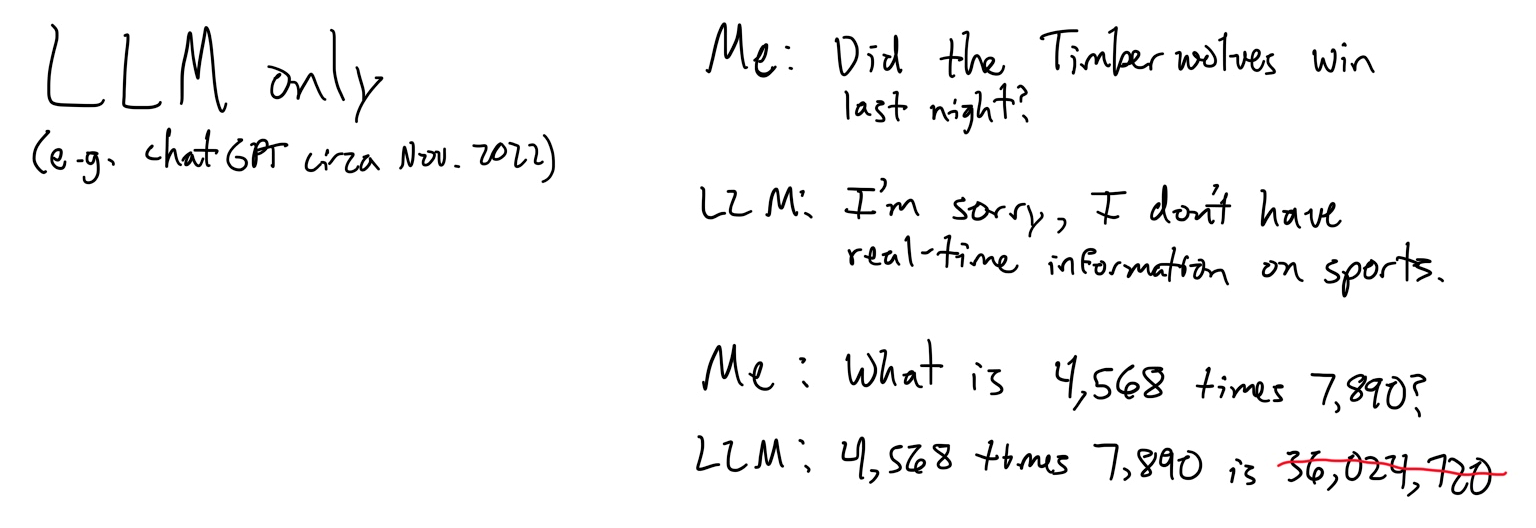 LLM only
(e.g. chatGPT circa Nov. 2022)
Me: Did the Timberwolves win
last night?
LLM: I'm sorry, I don't have
real-time information on sports.
Me: What is 4,568 times 7,890?
LLM: 4,568 times 7,890 is 36,024,720